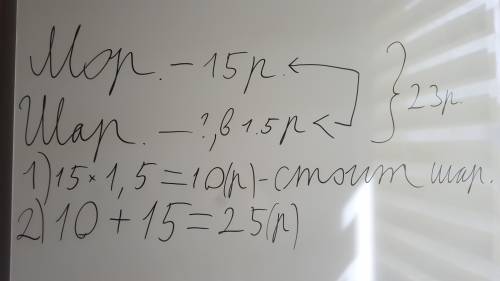 Мор. – 15р.
Шар. – ?, в 1.5 р <
} 23р.
1) 15 × 1,5 = 10(р) – стоит шар.
2) 10 + 15 = 25(р)